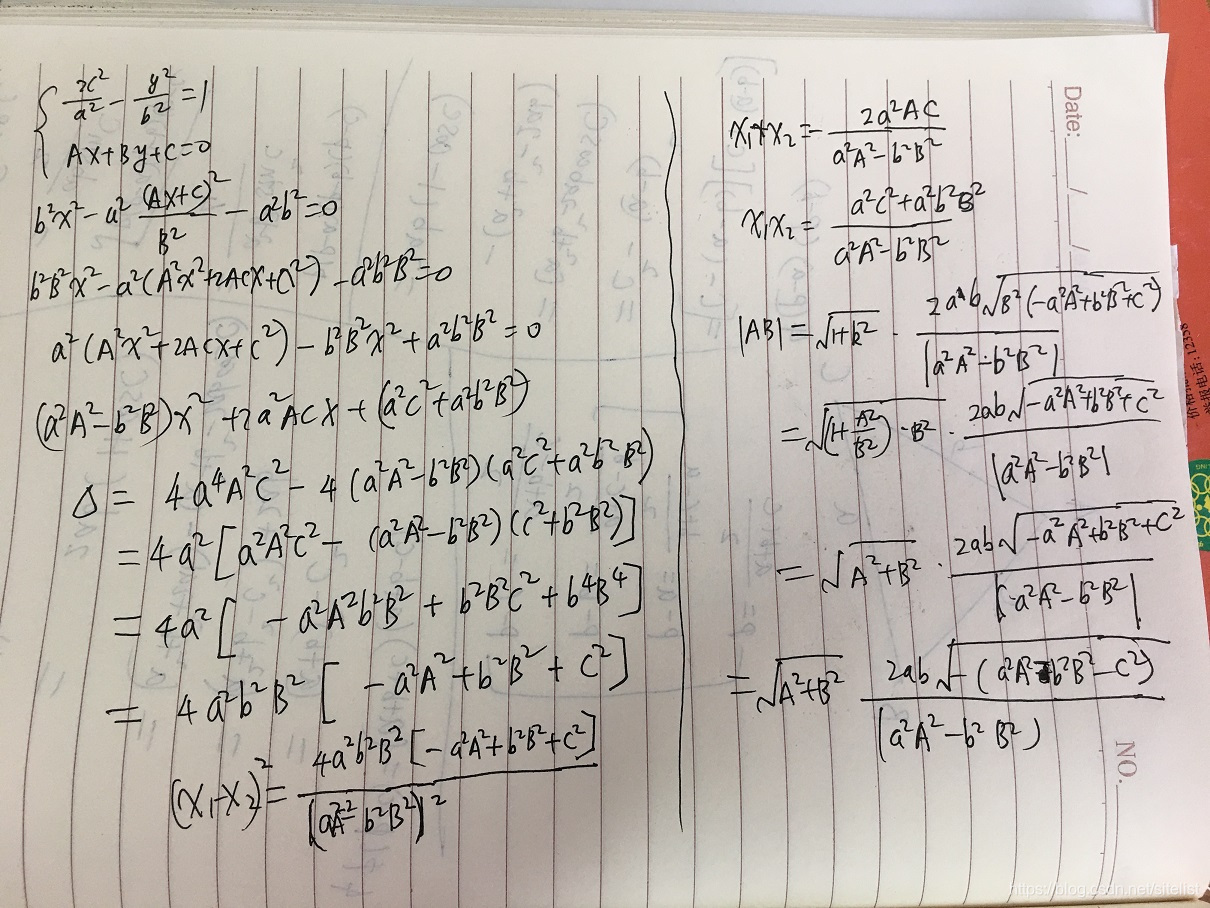 x²/a² - y²/b² = 1
Ax+By+C=0
b²x² - a² (Ax+C)²/B² - a²b² = 0
b²B²x² - a²(A²x²+2ACx+C²) - a²b²B² = 0
a²(A²x²+2ACx+C²) - b²B²x² + a²b²B² = 0
(a²A² - b²B²)x² + 2a²ACx + (a²C²+a²b²B²)
Δ = 4a⁴A²C² - 4(a²A²-b²B²)(a²C²+a²b²B²)
= 4a²[a²A²C² - (a²A²-b²B²)(C²+b²B²)]
= 4a²[ - a²A²b²B² + b²B²C² + b⁴B⁴]
= 4a²b²B² [ -a²A² + b²B² + C²]
(x₁-x₂)² = 4a²b²B²[-a²A²+b²B²+C²] / (a²A²-b²B²)²
x₁+x₂ = - 2a²AC / a²A²-b²B²
x₁x₂ = a²C²+a²b²B² / a²A²-b²B²
|AB| = √1+k² · 2ab√B²(-a²A²+b²B²+C²) / |a²A²-b²B²|
= √(1+A²/B²)·B² · 2ab√-a²A²+b²B²+C² / |a²A²-b²B²|
= √A²+B² · 2ab√-a²A²+b²B²+C² / |a²A²-b²B²|
= √A²+B² 2ab√-(a²A²-b²B²-C²) / |a²A²-b²B²)
Date: / /
NO.
12358
https://blog.csdn.net/sitelist